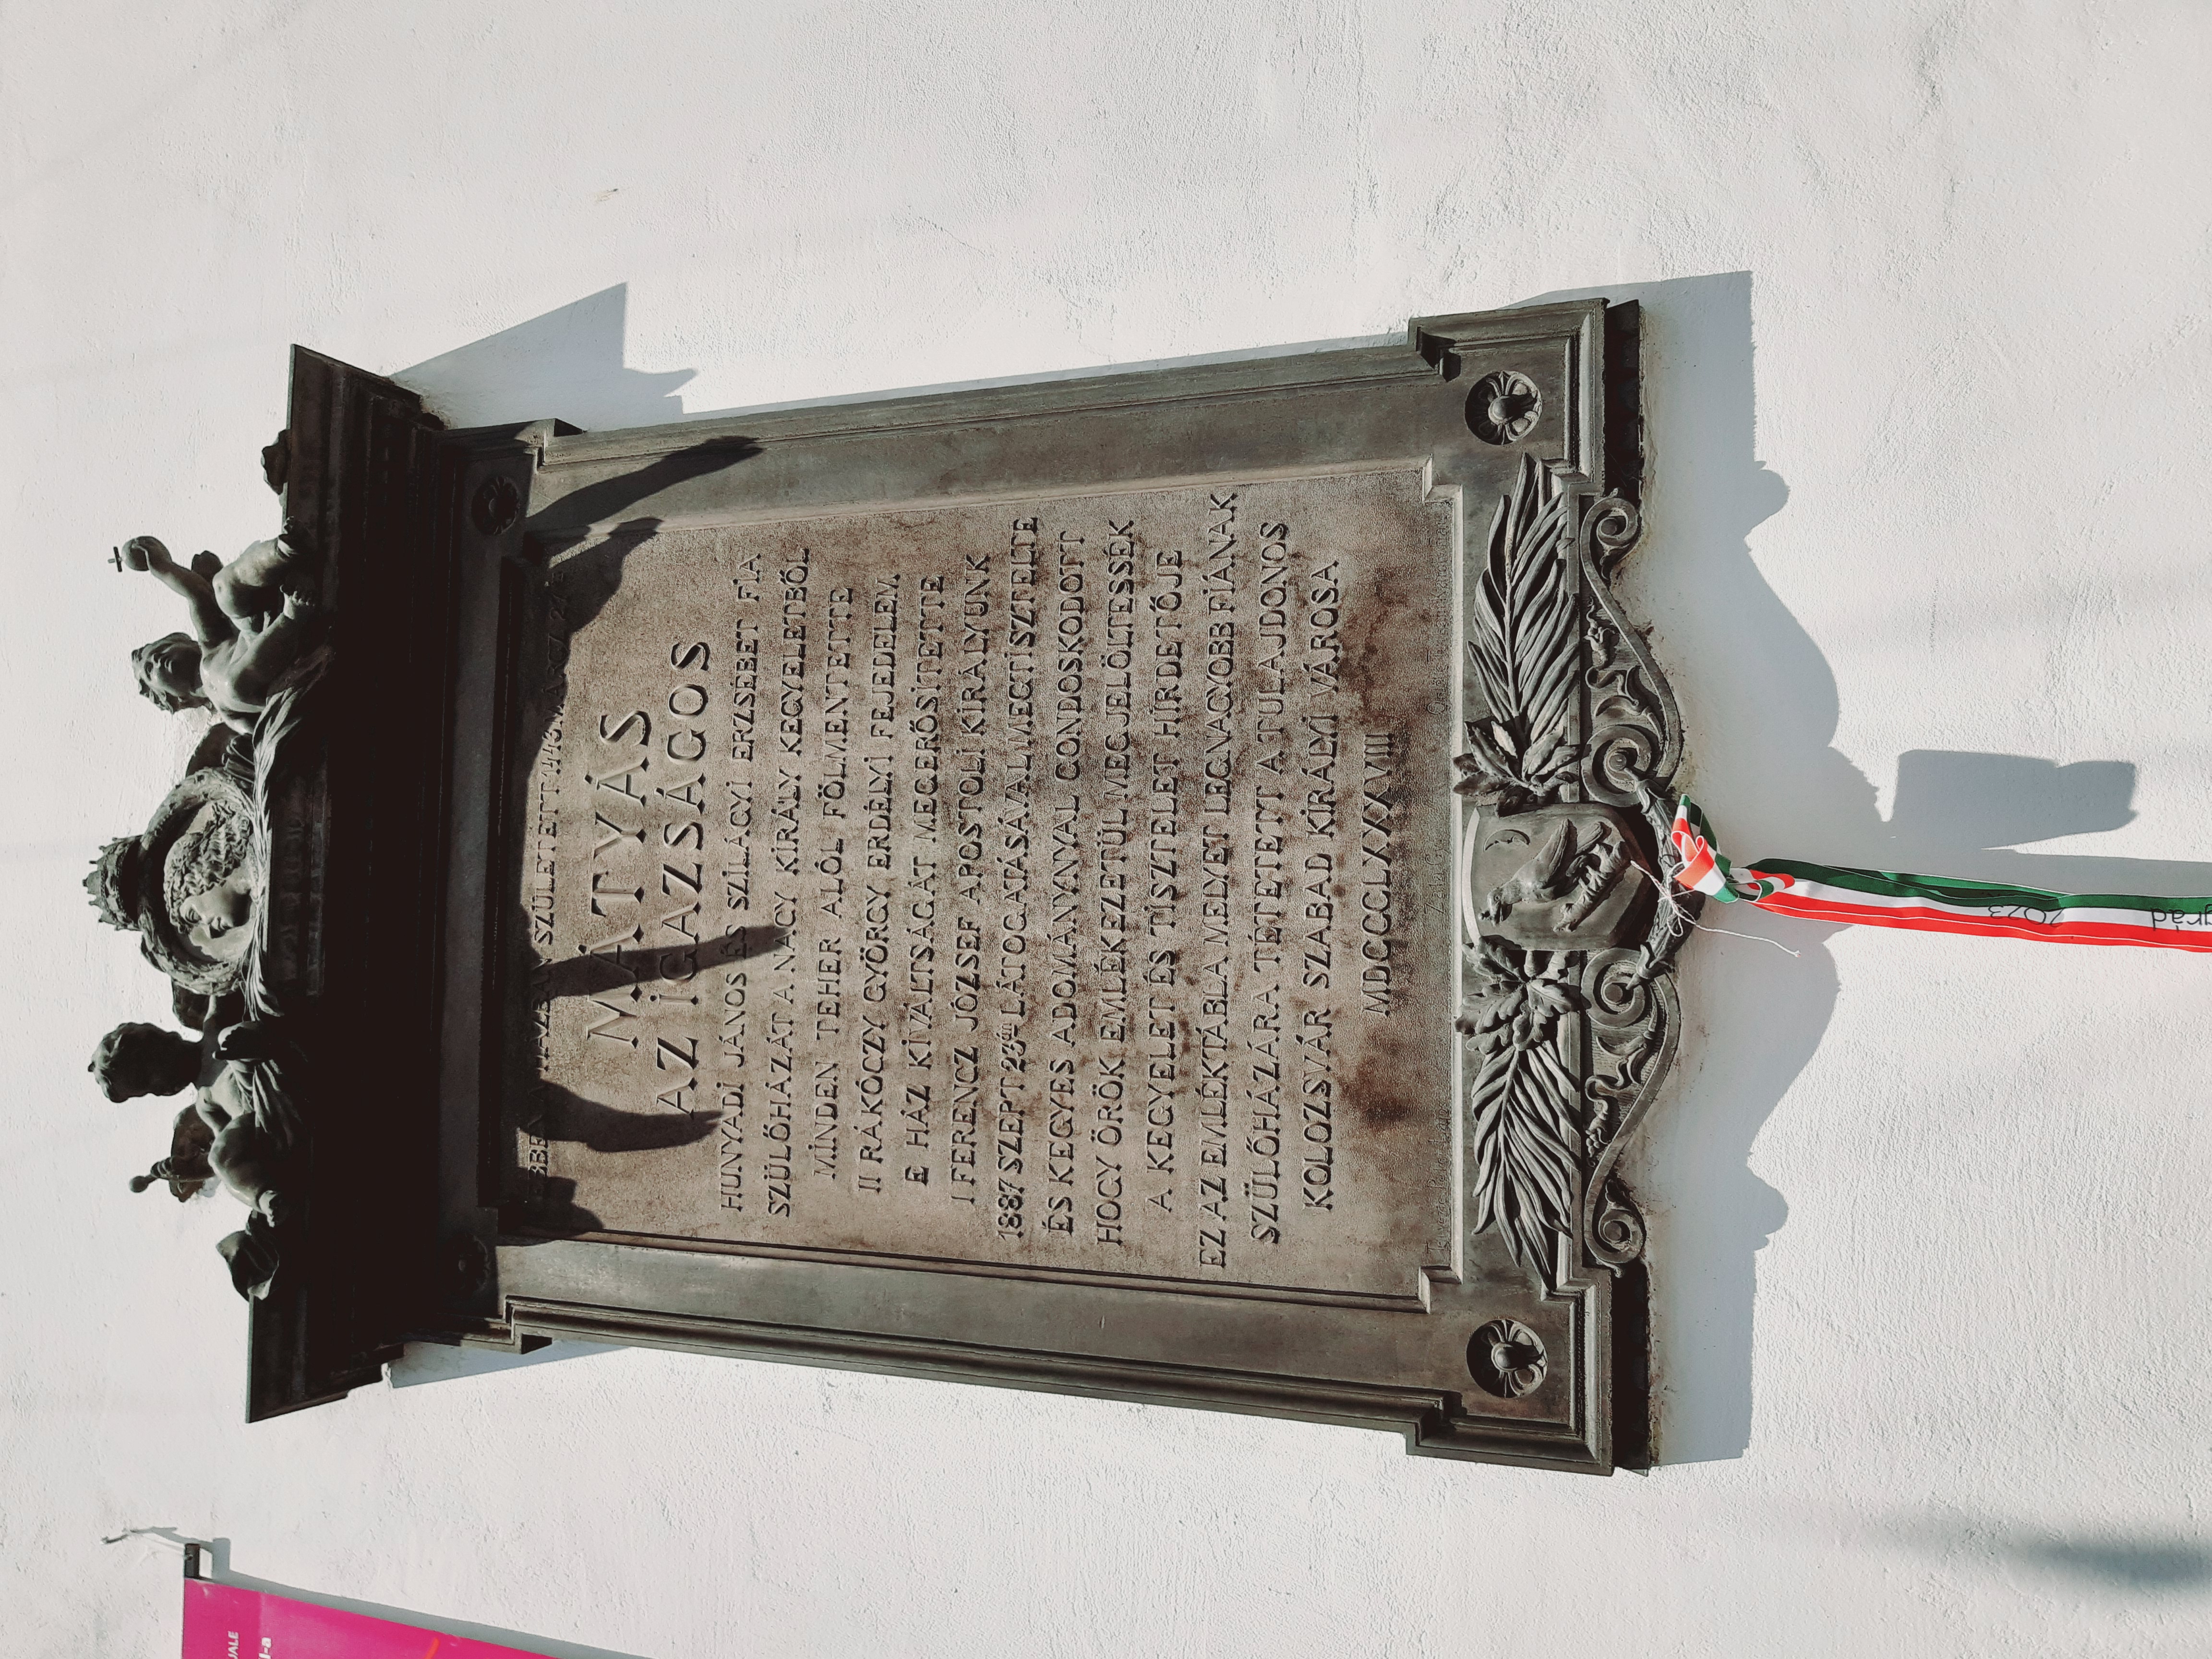 EBBEN A HÁZBAN SZÜLETETT 1443 MÁRCZ 27ÉN
MÁTYÁS
AZ İGAZSÁGOS
HUNYADİ JÁNOS ÉS SZİLÁGYİ ERZSÉBET FİA
SZÜLŐHÁZÁT A NAGY KİRÁLY KEGYELETBŐL
MİNDEN TEHER ALÓL FÖLMENTETTE
II RÁKÓCZY GYÖRGY ERDÉLYİ FEJEDELEM
E HÁZ KİVÁLTSÁGÁT MEGERŐSİTETTE
I FERENCZ JÓZSEF APOSTOLİ KİRÁLYUNK
1887 SZEPT 23ÁN LÁTOGATÁSÁVAL MEGTİSZTELTE
ÉS KEGYES ADOMÁNYNYAL GONDOSKODOTT
HOGY ÖRÖK EMLÉKEZETÜL MEGJELÖLTESSÉK
A KEGYELET ÉS TİSZTELET HİRDETŐJE
EZ AZ EMLÉKTÁBLA MELYET LEGNAGYOBB FİÁNAK
SZÜLŐHÁZÁRA TÉTETETT A TULAJDONOS
KOLOZSVÁR SZABAD KİRÁLYİ VÁROSA
MDCCCLXXXVIIII
2023
grád
UALE
l-a